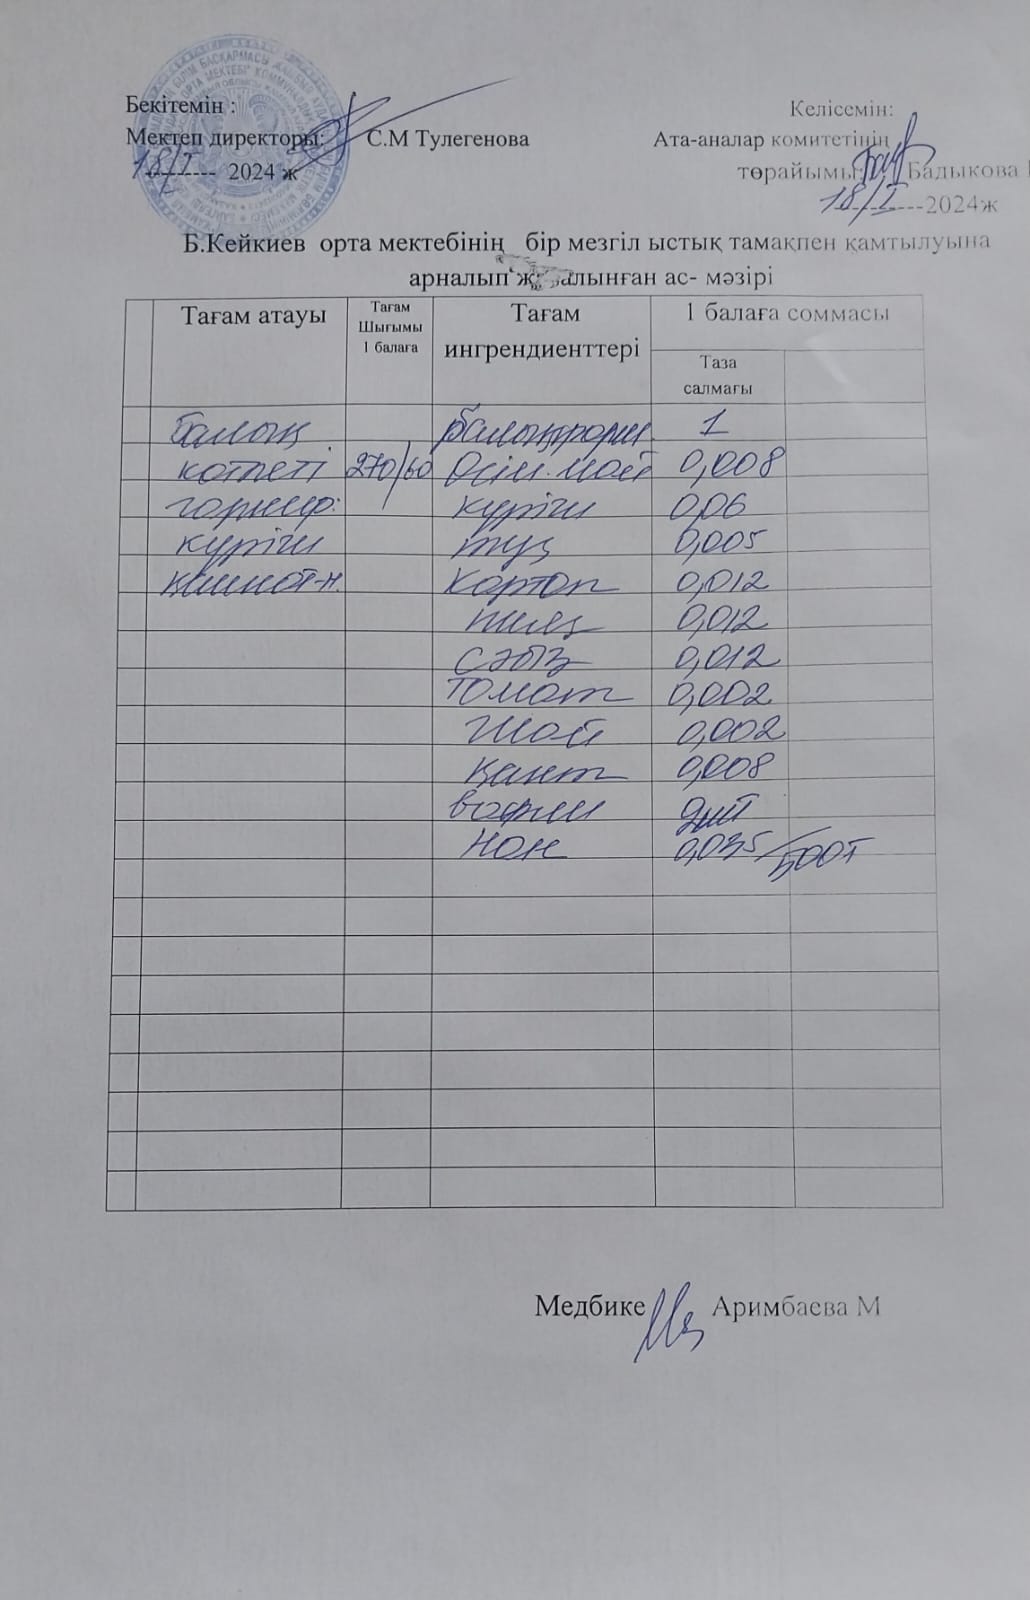 Бекітемін :
Мектеп директоры: С.М Тулегенова
18/I 2024 ж
Келісемін:
Ата-аналар комитетінің
төрайымы: Бадыкова
18/I ---2024ж
Б.Кейкиев орта мектебінің бір мезгіл ыстық тамақпен қамтылуына
арналып алынған ас- мәзірі
Тағам атауы
Тағам
Шығымы
1 балаға
Тағам
ингрендиенттері
1 балаға соммасы
Таза
салмағы
балық 1
котлеті 270/60 Өсім. май 0,008
гарнир: күріш 0,06
күріш тұз 0,005
картоп 0,012
пияз 0,012
сәбіз 0,012
томат 0,002
Шай 0,002
қант 0,008
вафли 2шт
Нон 0,035 / 500т
Медбике Аримбаева М